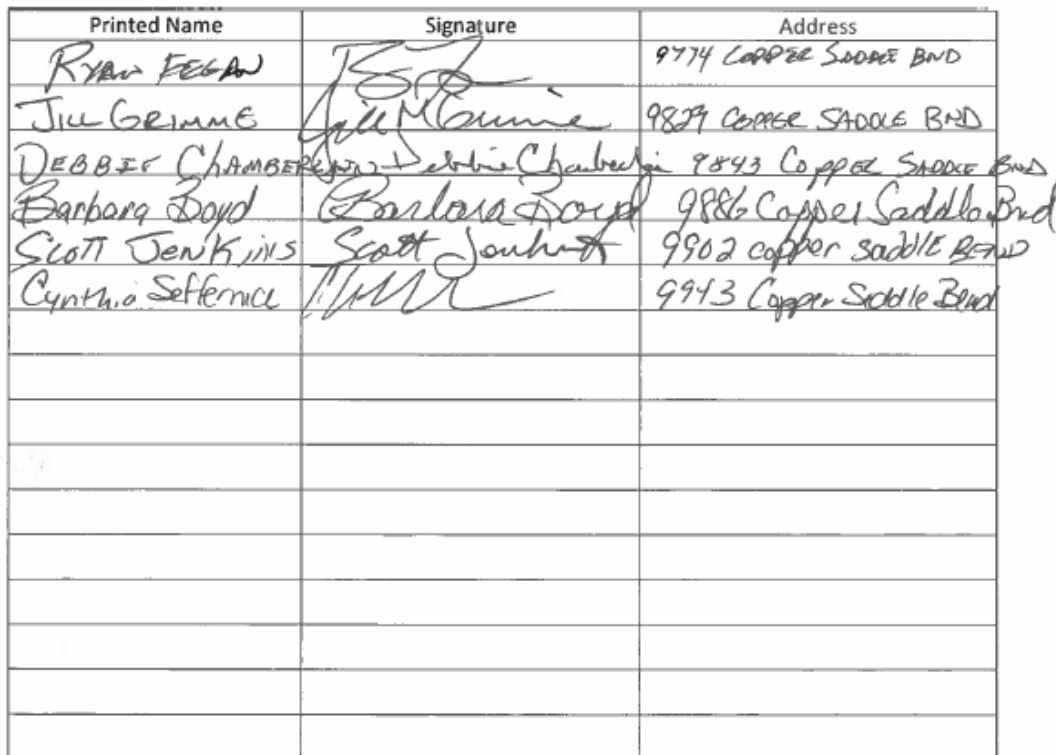 Printed Name Signature Address
Ryan Fegan 9774 Copper Saddle Bnd
Jill Grimme Jill M Grimme 9829 Copper Saddle Bnd
Debbie Chamberlain Debbie Chamberlain 9843 Copper Saddle Bnd
Barbara Boyd Barbara Boyd 9886 Copper Saddle Bnd
Scott Jenkins Scott Jenkins 9902 copper saddle Bend
Cynthia 9943 Copper Saddle Bend